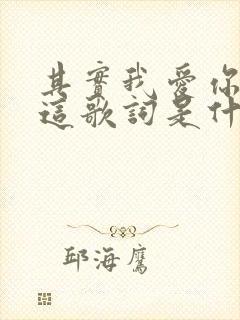 其實我愛你
這歌詞是什
邱海鷹